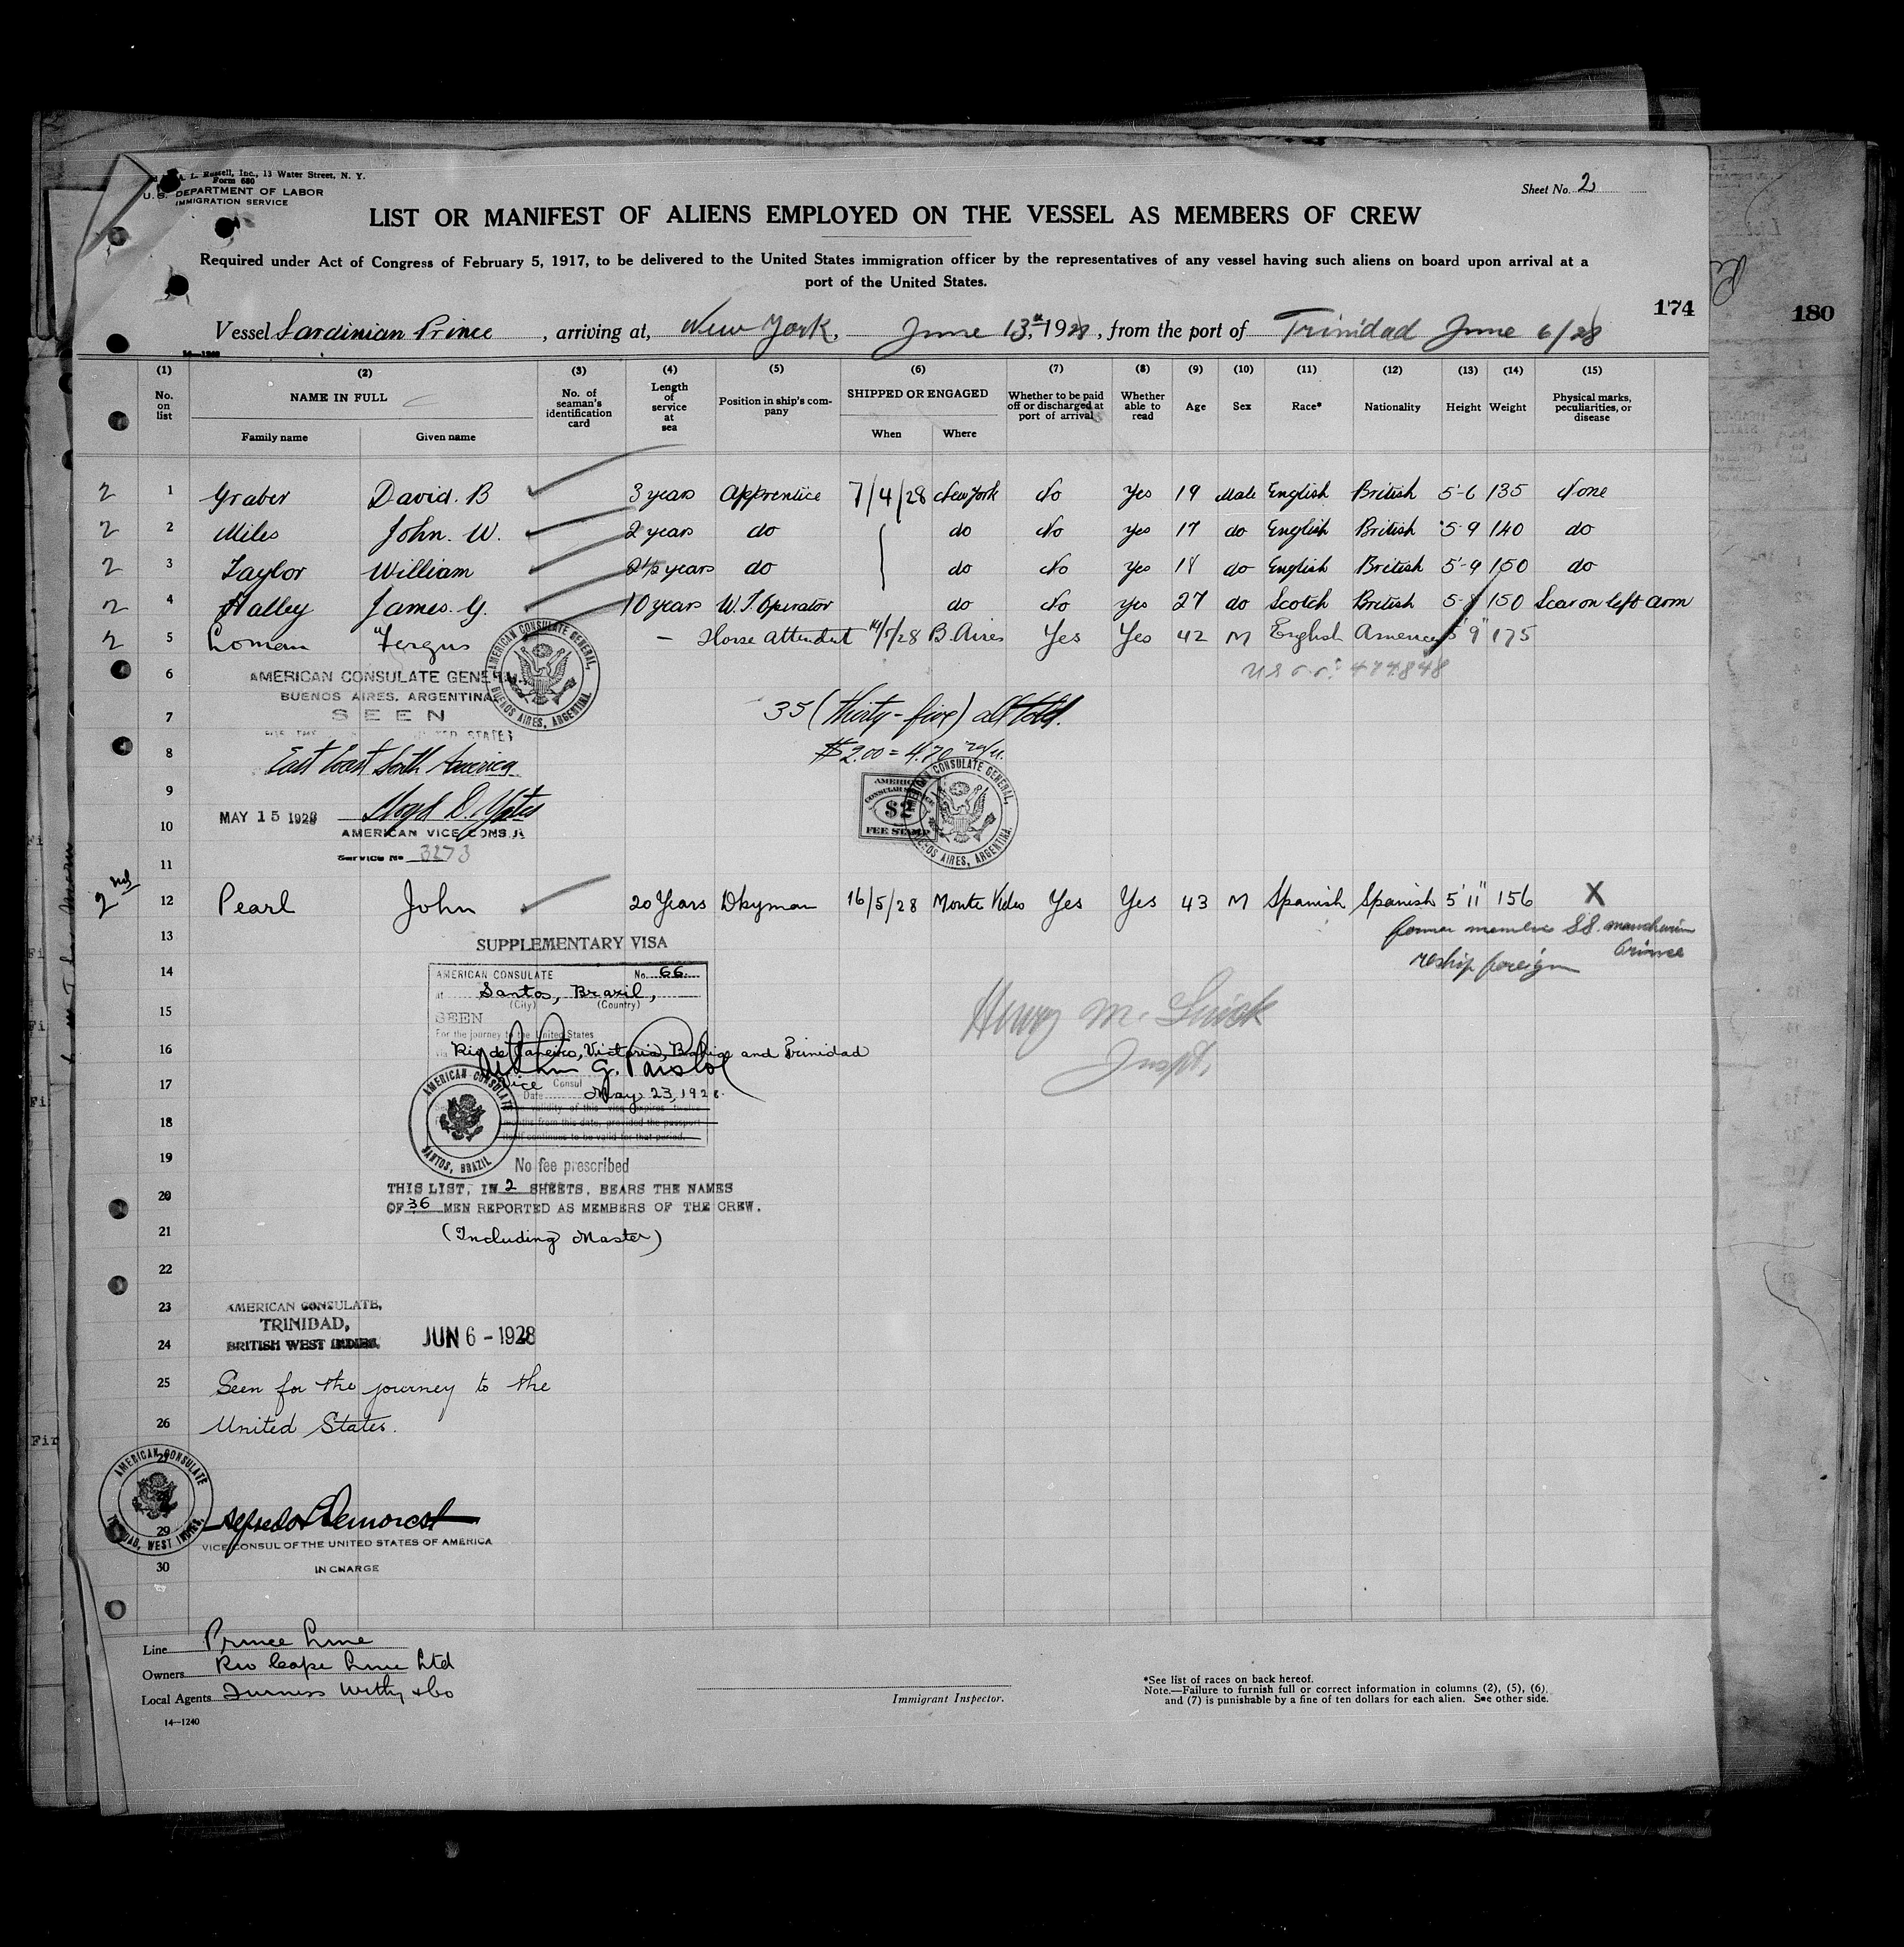 A. L. Russell, Inc., 13 Water Street, N. Y.
Form 680
U. S. DEPARTMENT OF LABOR
IMMIGRATION SERVICE
Sheet No. 2
LIST OR MANIFEST OF ALIENS EMPLOYED ON THE VESSEL AS MEMBERS OF CREW
Required under Act of Congress of February 5, 1917, to be delivered to the United States immigration officer by the representatives of any vessel having such aliens on board upon arrival at a
port of the United States.
174
180
Vessel Sardinian Prince, arriving at, New York, June 13th, 1928, from the port of Trinidad June 6/28
14—1240
(1) (2) (3) (4) (5) (6) (7) (8) (9) (10) (11) (12) (13) (14) (15)
No. on list NAME IN FULL No. of seaman's identification card Length of service at sea Position in ship's company SHIPPED OR ENGAGED Whether to be paid off or discharged at port of arrival Whether able to read Age Sex Race* Nationality Height Weight Physical marks, peculiarities, or disease
Family name Given name When Where
2 1 Graber David. B 3 years Apprentice 7/4/28 New York No Yes 19 Male English British 5-6 135 None
2 2 Miles John. W. 2 years do do No yes 17 do English British 5-9 140 do
2 3 Taylor William 2½ years do do No yes 18 do English British 5-9 150 do
2 4 Halley James. G. 10 years W.T. Operator do No yes 27 do Scotch British 5-8 150 Scar on left arm
2 5 Fergus — Horse Attendent 14/5/28 B. Aires Yes Yes 42 M English 5'9" 175
6 AMERICAN CONSULATE GENERAL,
BUENOS AIRES, ARGENTINA
7 SEEN
35 (thirty-five) all told.
8 East Coast South America
$2.00 = 4.70
9
MAY 15 1928 Lloyd D. Yates
10 AMERICAN VICE CONSUL
Service No 3273
11
AMERICAN CONSULATE GENERAL, BUENOS AIRES, ARGENTINA.
AMERICAN CONSULAR SERVICE
$2
FEE STAMP
AMERICAN CONSULATE GENERAL, BUENOS AIRES, ARGENTINA.
2nd 12 Pearl John 20 Years Dkyman 16/5/28 Monte Video Yes Yes 43 M Spanish Spanish 5'11" 156 X
13 former member SS. manchurian
Prince
reship foreign
SUPPLEMENTARY VISA
14 AMERICAN CONSULATE No. 66
At Santos, Brazil,
(City) (Country)
15 SEEN
For the journey to the United States
16 via Rio de Janeiro, Victoria, Bahia and Trinidad
17 Vice Consul
Date May 23, 1928.
validity of this visa expires twelve
18 months from this date, provided the passport
itself continues to be valid for that period.
AMERICAN CONSULATE SANTOS, BRAZIL
Henry M.
Inspt.
19 No fee prescribed
20 THIS LIST, IN 2 SHEETS, BEARS THE NAMES
OF 36 MEN REPORTED AS MEMBERS OF THE CREW.
21 (Including Master)
22
23 AMERICAN CONSULATE,
TRINIDAD,
24 BRITISH WEST INDIES. JUN 6 - 1928
25 Seen for the journey to the
26 United States.
27
AMERICAN CONSULATE TRINIDAD, WEST INDIES
29 Alfredo Demorest
VICE CONSUL OF THE UNITED STATES OF AMERICA
30 IN CHARGE
Line Prince Line
Owners Rio Cape Line Ltd
Local Agents Furness Withy & Co
14—1240
Immigrant Inspector.
*See list of races on back hereof.
Note.—Failure to furnish full or correct information in columns (2), (5), (6),
and (7) is punishable by a fine of ten dollars for each alien. See other side.